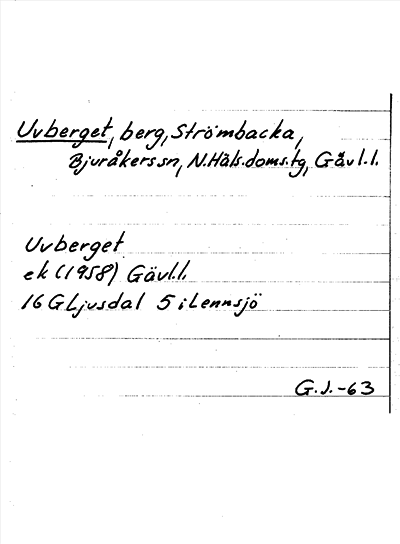 Uvberget, berg, Strömbacka,
Bjuråkers sn, N.Häls.doms.tg, Gävl.l.
Uvberget
ek (1958) Gävl.l.
16 G Ljusdal 5 i Lennsjö
G.J.-63